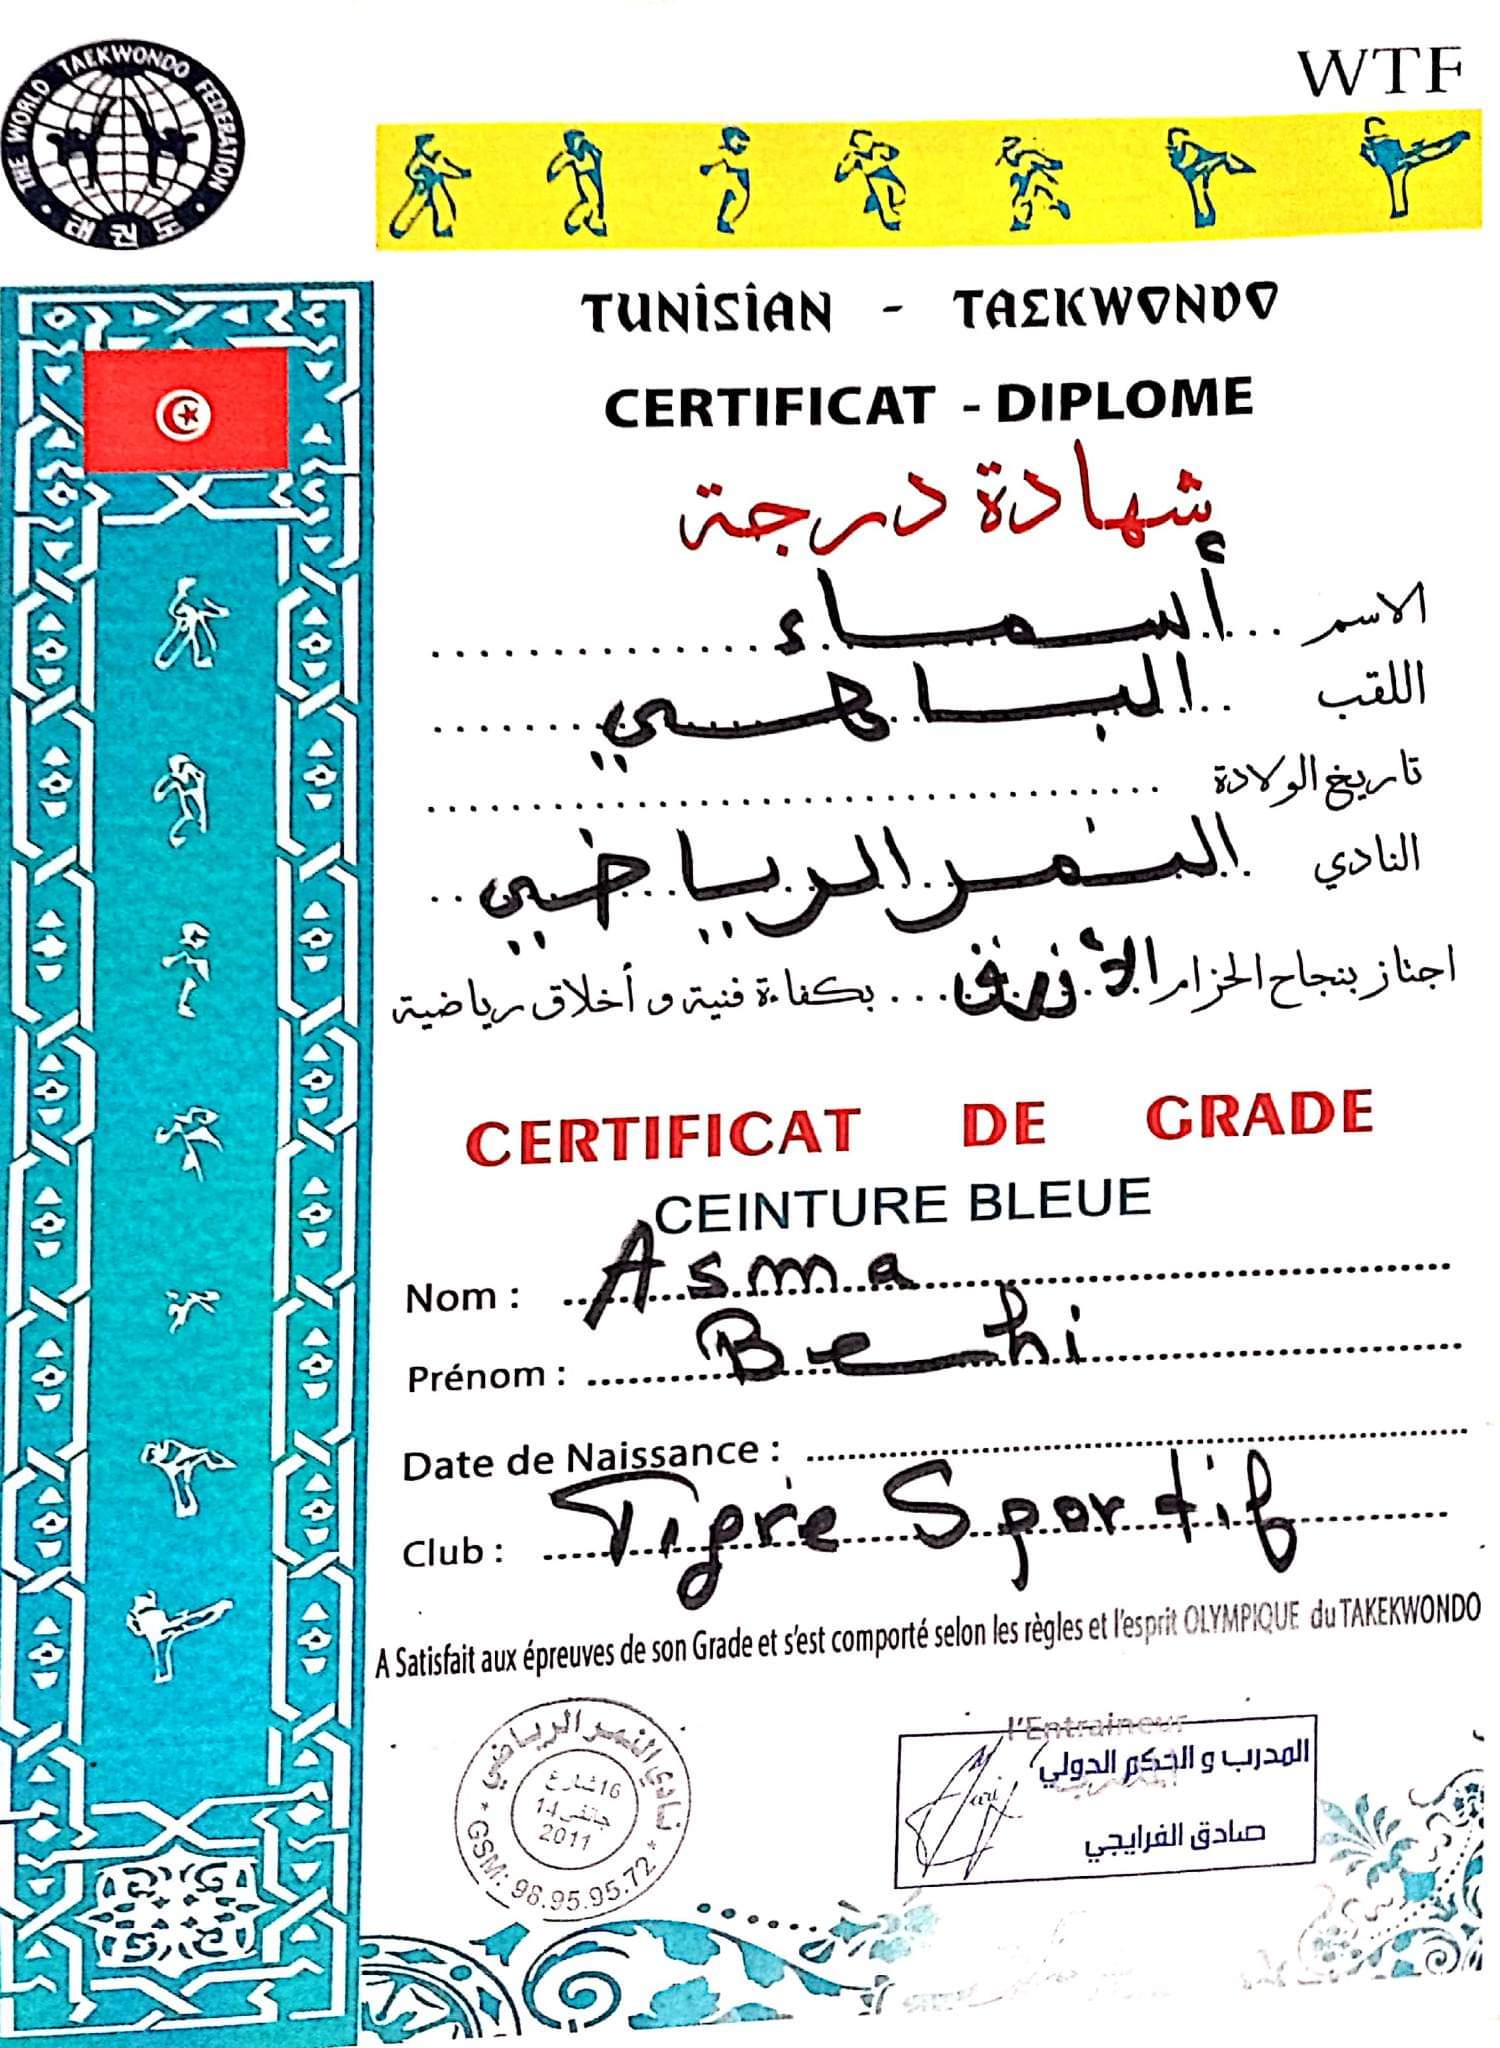 THE WORLD TAEKWONDO FEDERATION
태권도
WTF
TUNISIAN - TAEKWONDO
CERTIFICAT - DIPLOME
شهادة درجة
الاسم أسماء
اللقب الباهي
تاريخ الولادة
النادي النمر الرياضي
اجتاز بنجاح الحزام الأزرق بكفاءة فنية و أخلاق رياضية
CERTIFICAT DE GRADE
CEINTURE BLEUE
Nom : Asma
Prénom : Behi
Date de Naissance :
Club : Tigre Sportif
A Satisfait aux épreuves de son Grade et s'est comporté selon les règles et l'esprit OLYMPIQUE du TAKEKWONDO
نادي النمر الرياضي
16 شارع
14 جانفي
2011
GSM: 98.95.95.72
l'Entraineur
المدرب و الحكم الدولي
صادق الفرايجي